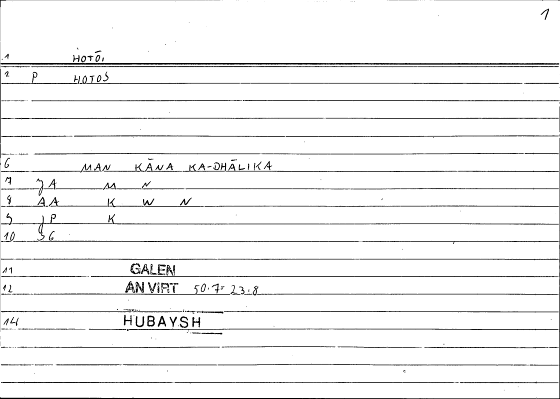 1
1 HOTŌI
2 P HOTOS
6 MAN KĀNA KA-DHĀLIKA
7 JA M N
8 AA K W N
9 JP K
10 SG
11 GALEN
12 AN VIRT 50.7 23.8
14 HUBAYSH